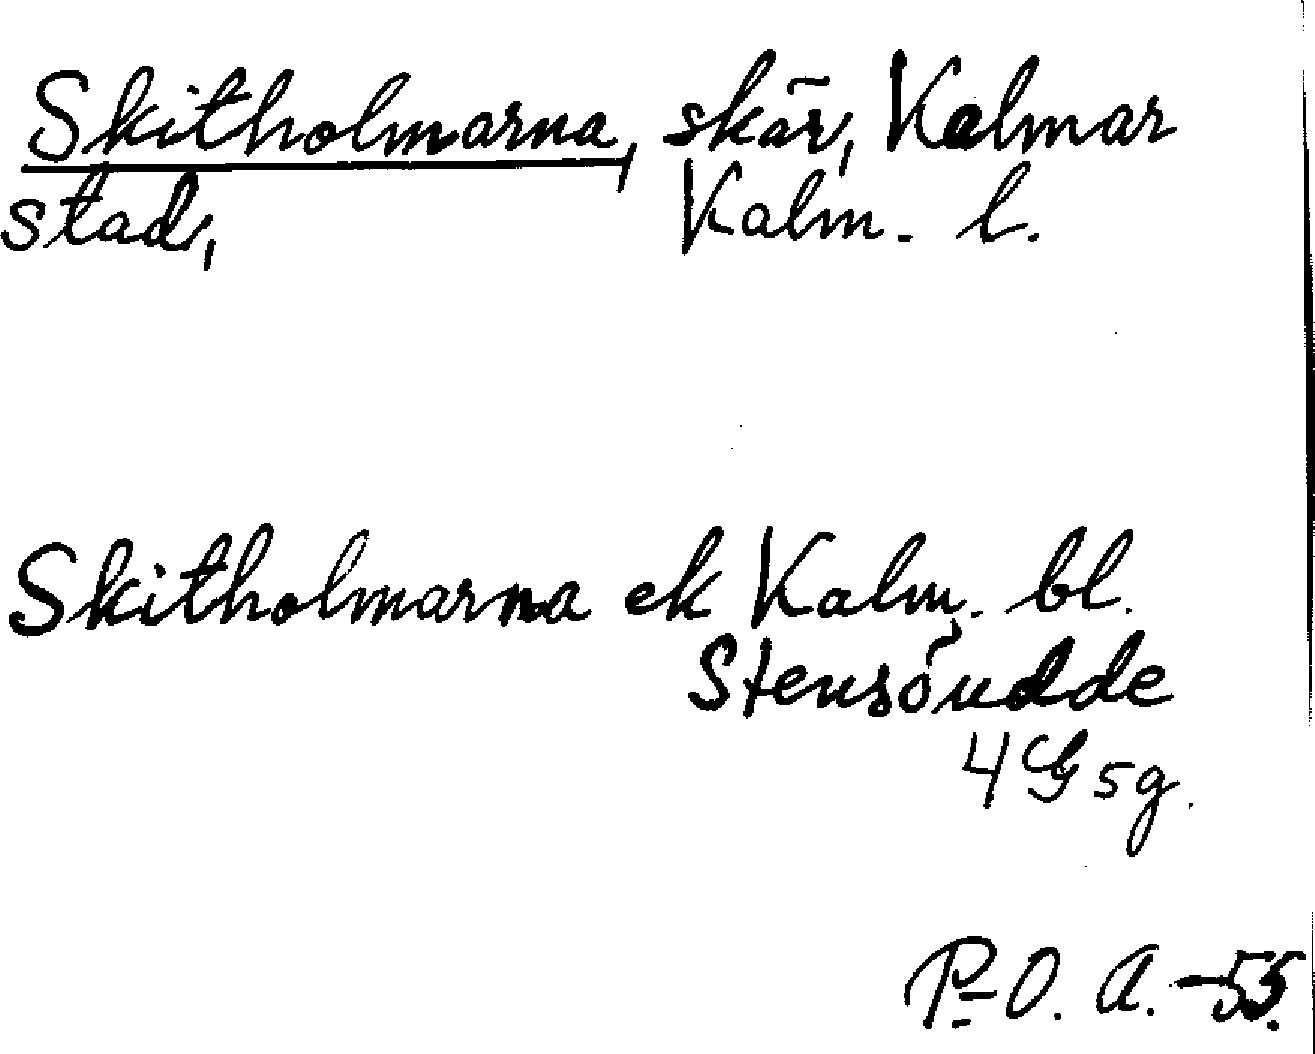 Skitholmarna, skär, Kalmar
stad, Kalm. l.
Skitholmarna ek Kalm. bl.
Stensöudde
4 G 5 g.
P-O. A. -55.